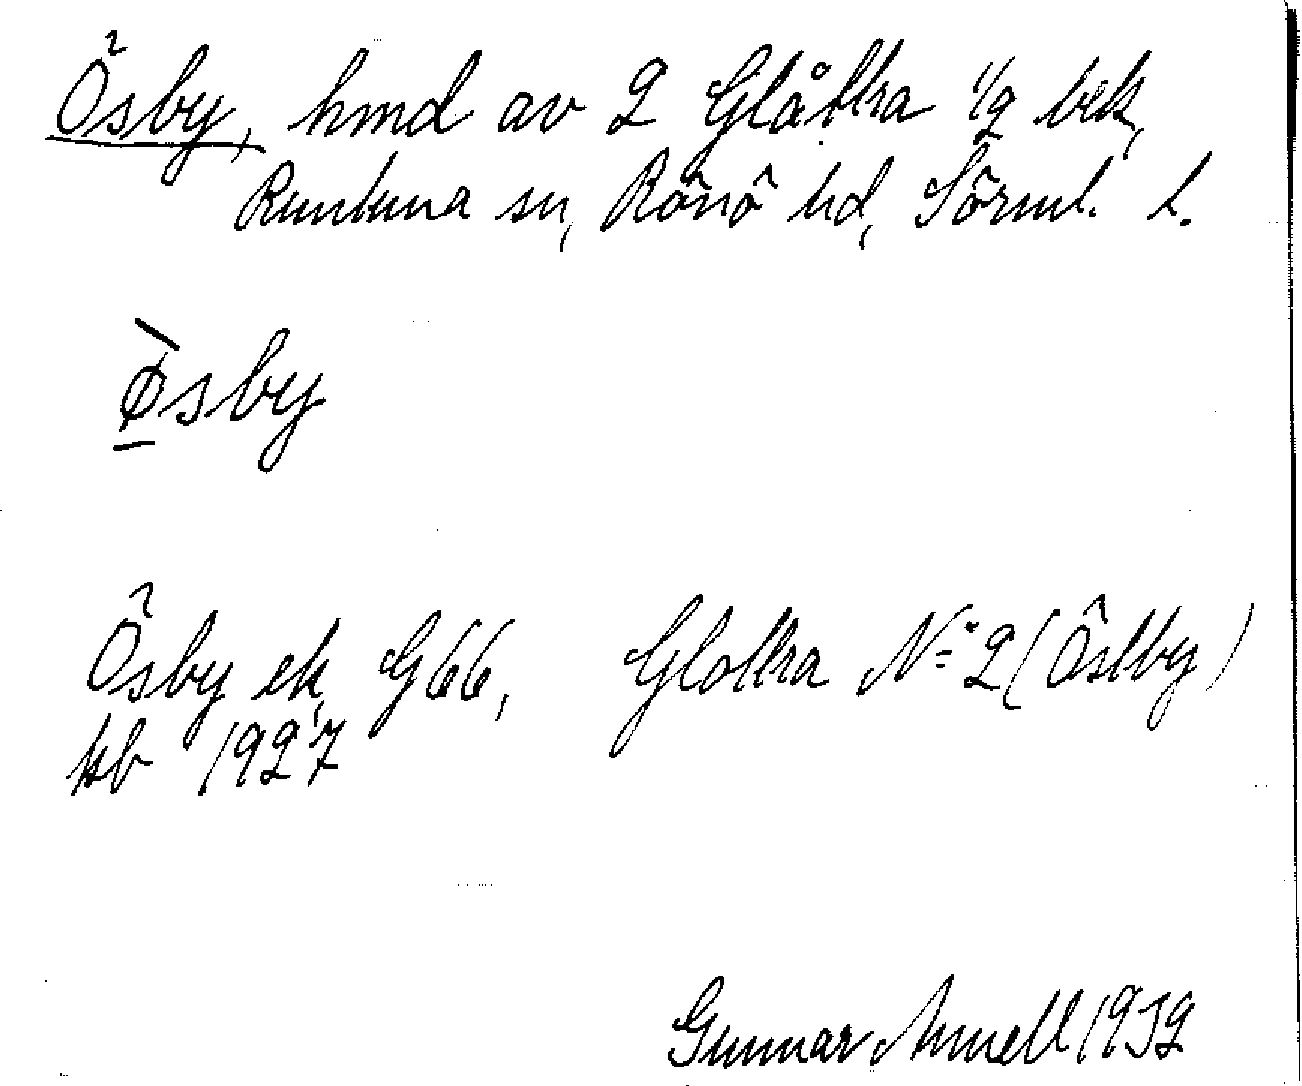 Ösby, hmd av 2 Glåttra 1/2 bek,
Runtuna sn, Rönö hd, Sörml. l.
ø̀sby
Ösby ek G66, Glottra N:o 2 (Östby)
kb 1927
Gunnar Arnell 1932